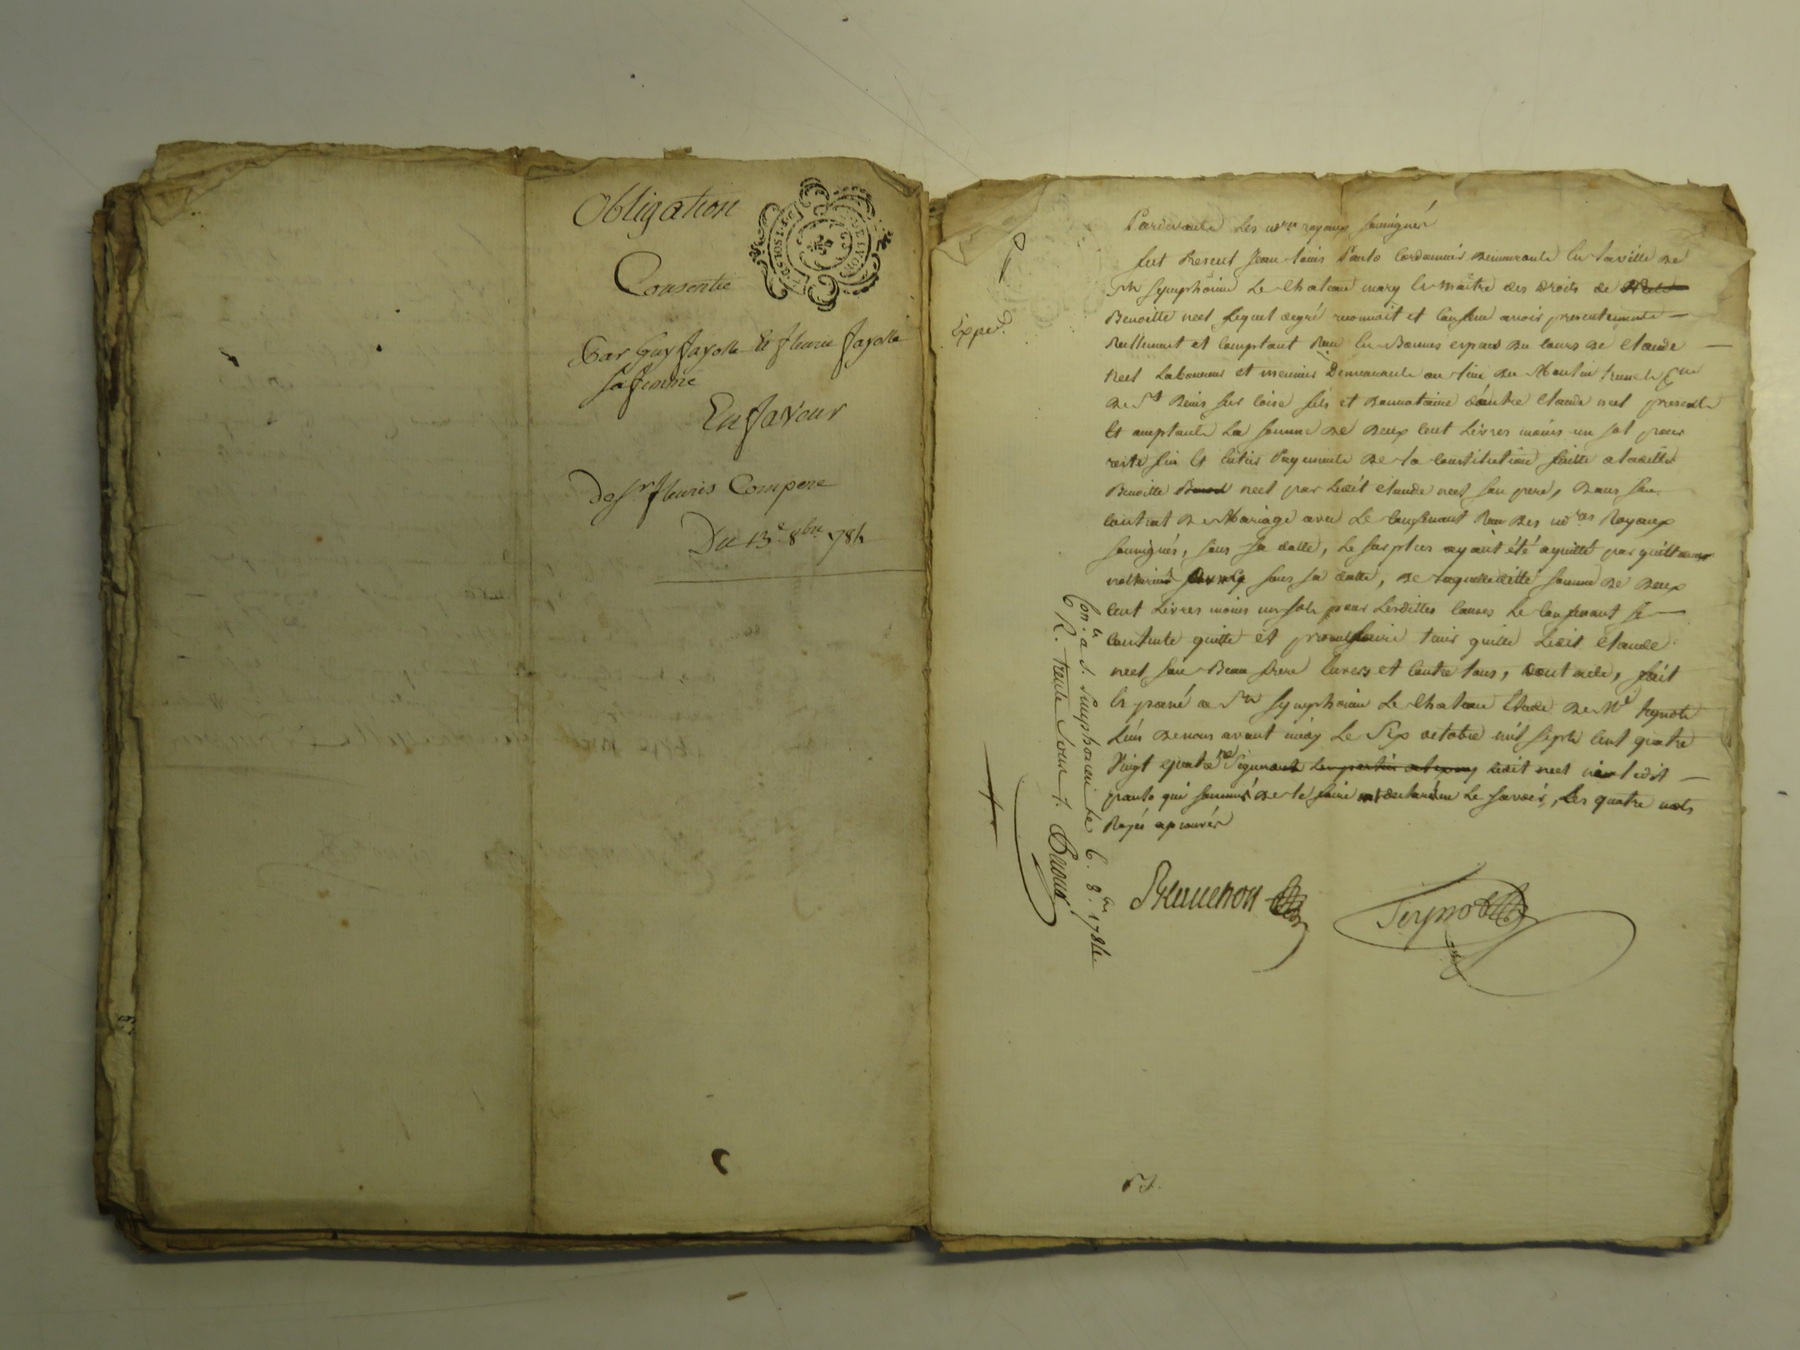 Obligation
Consentie
Par Guy fayolle Et fleurie fayolle
sa femme
En faveur
de Sr fleuris Compere
Du 13e 8bre 784
Pardevant les nres royaux soussignés
fut Present Jean Louis Panlo Cordonnier demeurant en la ville de
St Symphorien le Chateau mary et maitre des droits de
Benoitte neel lequel degré reconnait et confesse avoir presentement
Reellement et comptant Reçu en Bonnes especes du cours de Claude
neel Laboureur et meunier Demeurant au lieu du Moulin
de St Denis sur Coise fils et Donnataire d'autre Claude neel present
Et acceptant La somme de deux cent Livres moins un sol pour
reste fin et entier Payement de la Constitution faitte a ladite
Benoitte neel par ledit Claude neel son pere, dans son
contrat de Mariage avec le confessant Reçu des nres Royaux
soussignés, sous sa datte, le surplus ayant été aquitté par quittance
sous sa datte, de laquelle ditte somme de deux
cent Livres moins un sol pour lesdittes causes le confessant se
contente quitte et promet faire tenir quitte ledit Claude
neel son Beau frere envers et contre tous, dont acte, fait
et passé a St Symphorien le Chateau Etude de Me
L'un de nous avant midy le Six octobre mil sept cent quatre
Vingt quatre ledit neel ledit
Panlo qui sommé de le faire a declaré ne le savoir, les quatre mots
Rayés aprouvés
Exped
Con.lé a S. Simphorien le 6. 8bre 1784
R. trente sous